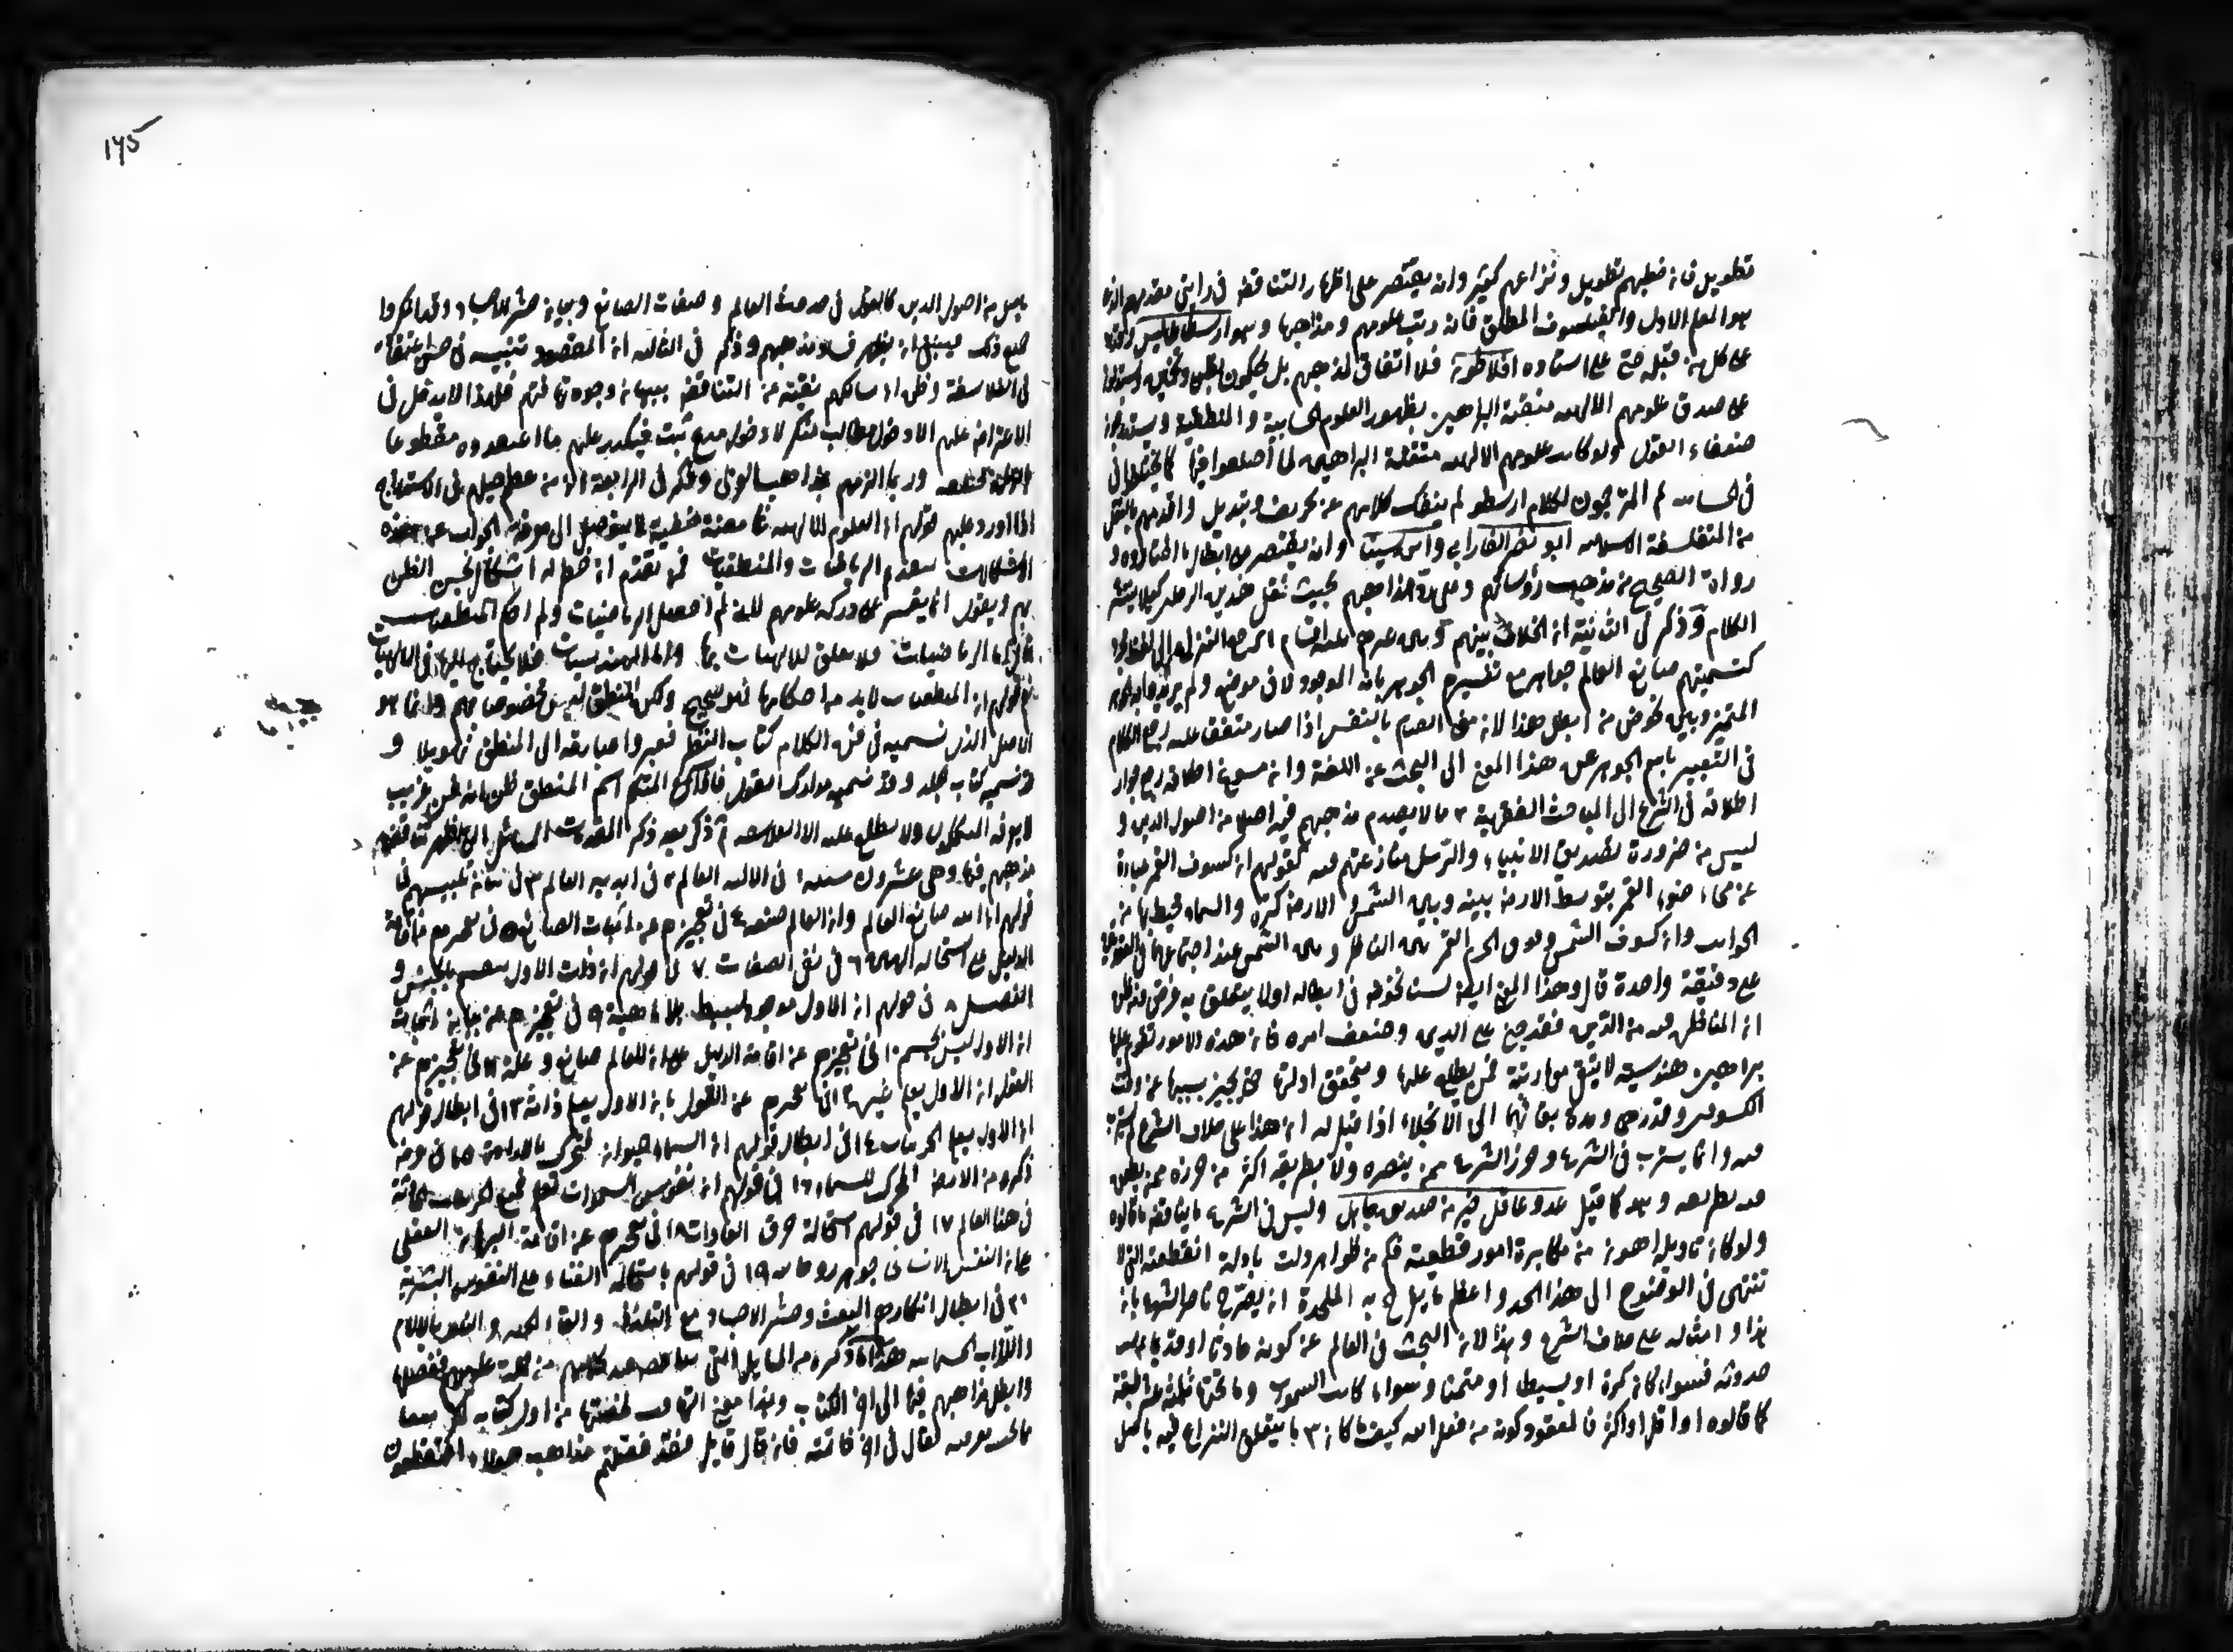 تطويل فان خطبهم طويل ونزاعهم كثير وانه يقتصر على اظهار التناقض في راي مقدمهم الذي
هو المعلم الاول والفيلسوف المطلق فانه رتب علومهم ومذاهبها وهو ارسطاطاليس وقد رد
على كل من قبله حتى على استاده افلاطون فلا اتفاق لمذهبهم بل يحكمون بظن وتخمين ويستدلوا
على صدق علومهم الالهيه متقنة البراهين بظهور العلوم الحسابية والمنطقية ويستدرجون
ضعفاء العقول ولو كانت علومهم الالهيه متقنة البراهين لما اختلفوا فيها كما لم يختلفوا في
في الحساب ثم المترجمون لكلام ارسطو لم ينفك كلامهم عن تحريف وتبديل واقومهم بالنقل
من المتفلسفة الاسلاميه ابو نصر الفارابي وابن سينا وانه يقتصر على ابطال ما اختاروه و
رواه الصحيح من مذهب رؤسائهم وعلى رد مذاهبهم بحيث نقل هذين الرجلين كيلا ينتشر
الكلام وذكر في الثانية ان الخلاف بينهم وبين غيرهم ثلثة اقسام ا يرجع النزاع الى لفظ مجرد
كتسميتهم صانع العالم جوهرا مع تفسيرهم الجوهر بانه الموجود لا في موضوع ولم يريدوا به الجوهر
المتحيز ولسنا نخوض في ابطال هذا لان معنى القيام بالنفس اذا صار متفقا عليه رجع الكلام
في التعبير باسم الجوهر عن هذا المعنى الى البحث عن اللغة وان سوغ اطلاقه رجع جواز
اطلاقه في الشرع الى المباحث الفقهية ٢ ما لا يصدم مذهبهم فيه اصلا من اصول الدين و
ليس من ضرورة تصديق الانبياء والرسل منازعتهم فيه كقولهم ان كسوف القمر عبارة
عن محاء ضوء القمر بتوسط الارض بينه وبين الشمس والارض كرة والسماء محيط بها من
الجوانب وان كسوف الشمس وقوف جرم القمر بين الناظر وبين الشمس عند اجتماعهما في العقدتين
على دقيقة واحدة قال وهذا الفن ايضا لسنا نخوض في ابطاله اذ لا يتعلق به غرض ومن ظن
ان المناظره فيه من الدين فقد جنى على الدين وضعف امره فان هذه الامور تقوم عليها
براهين هندسية لا يبقى معها ريبة فمن يطلع عليها ويتحقق ادلتها حتى يخبر بسببها عن وقت
الكسوفين وقدرهما ومدة بقائهما الى الانجلاء اذا قيل له ان هذا على خلاف الشرع لم يسترب
فيه وانما يستريب في الشرع وضرر الشرع ممن ينصره لا بطريقه اكثر من ضرره ممن يطعن
فيه بطريقه وهو كما قيل عدو عاقل خير من صديق جاهل وليس في الشرع ما يناقض ما قالوه
ولو كان تاويله اهون من مكابرة امور قطعية فكم من ظواهر اولت بادلة انقطعية التي لا
تنتهي في الوضوح الى هذا الحد واعظم ما يفرح به الملحدة ان يصرح ناصر الشرع بان
هذا وامثاله على خلاف الشرع وهذا لان البحث في العالم عن كونه حادثا او قديما ثم اذا ثبت
حدوثه فسواء كان كرة او بسيطا او مثمنا وسواء كانت السموات وما تحتها ثلثة عشر طبقة
كما قالوه او اقل او اكثر فالمقصود كونه من فعل الله كيف ما كان ٣ ما يتعلق النزاع فيه باصل
١٧٥
باصل من اصول الدين كالقول في حدوث العالم وصفات الصانع وبيان حشر الاجساد وقد انكروا
جميع ذلك فينبغي ان يظهر فساد مذهبهم وذكر في الثالثه ان المقصود تنبيه من حسن اعتقاده
في الفلاسفة وظن ان مسالكهم نقية عن التناقض ببيان وجوه تهافتهم فلهذا لا يدخل في
الاعتراض عليهم الا دخول مطالب منكر لا دخول مدع مثبت فيكدر عليهم ما اعتقدوه مقطوعا
بالزامات مختلفه وربما الزمهم بمذاهب الفرق وذكر في الرابعة ان من عظم حيلهم في الاستدراج
اذا اورد عليهم قولهم ان العلوم الالهيه غامضة خفية لا يتوصل الى معرفة الجواب عن هذه
الاشكالات الا بتقديم الرياضيات والمنطقيات فمن تقدم ان خطر له اشكال يحسن الظن
بهم ويقول انما يعسر على دركه علومهم لاني لم احصل الرياضيات ولم احكم المنطقيات
فنقول اما الرياضيات فلا تعلق للالهيات بها واما الهندسيات فلا يحتاج اليها في الالهيات
نعم قولهم ان المنطقيات لابد من احكامها فهو صحيح ولكن المنطق ليس مخصوصا بهم وانما هو
الاصل الذي نسميه في فن الكلام كتاب النظر فغيروا عبارته الى المنطق تهويلا و
قد نسميه كتاب الجدل وقد نسميه مدارك العقول فاذا سمع المتكلم اسم المنطق ظن انه فن غريب
لا يعرفه المتكلمون ولا يطلع عليه الا الفلاسفه ثم ذكر بعد ذكر المقدمات المسائل التي اظهر تناقض
مذهبهم فيها وهي عشرون مسئله ١ في ازلية العالم ٢ في ابديه العالم ٣ في بيان تلبيسهم في
قولهم ان الله صانع العالم وان العالم صنعه ٤ في تعجيزهم عن اثبات الصانع ٥ في تعجيزهم عن اقامة
الدليل على استحاله الهين ٦ في نفي الصفات ٧ في قولهم ان ذات الاول لا ينقسم بالجنس و
الفصل ٨ في قولهم ان الاول موجود بسيط بلا ماهية ٩ في تعجيزهم عن بيان اثبات
ان الاول ليس بجسم ١٠ في تعجيزهم عن اقامة الدليل على ان للعالم صانع وعلة ١١ في تعجيزهم عن
القول ان الاول يعلم غيره ١٢ في تعجيزهم عن القول بان الاول يعلم ذاته ١٣ في ابطال قولهم
ان الاول لا يعلم الجزئيات ١٤ في ابطال قولهم ان السماء حيوان متحرك بالارادة ١٥ في ما
ذكروه من الغرض المحرك للسماء ١٦ في قولهم ان نفوس السموات تعلم جميع الجزئيات الحادثة
في هذا العالم ١٧ في قولهم باستحالة خرق العادات ١٨ في تعجيزهم عن اقامة البرهان العقلي
على ان النفس الانساني جوهر روحاني ١٩ في قولهم باستحالة الفناء على النفوس البشرية
٢٠ في ابطال انكارهم البعث وحشر الاجساد مع التلذذ والتالم بالجنه والنار بالآلام
واللذات الجسمانيه هذا ما ذكره من المسايل التي تناقض فيها كلامهم من جملة علومهم ففصلها
وابطل مذاهبهم فيها الى اخر الكتاب وهذا معنى التهافت لخصتها من اول كتابه
فقال في اخر خاتمته فان قال قايل فقد فصلتم مذاهب هولاء افتقطعون